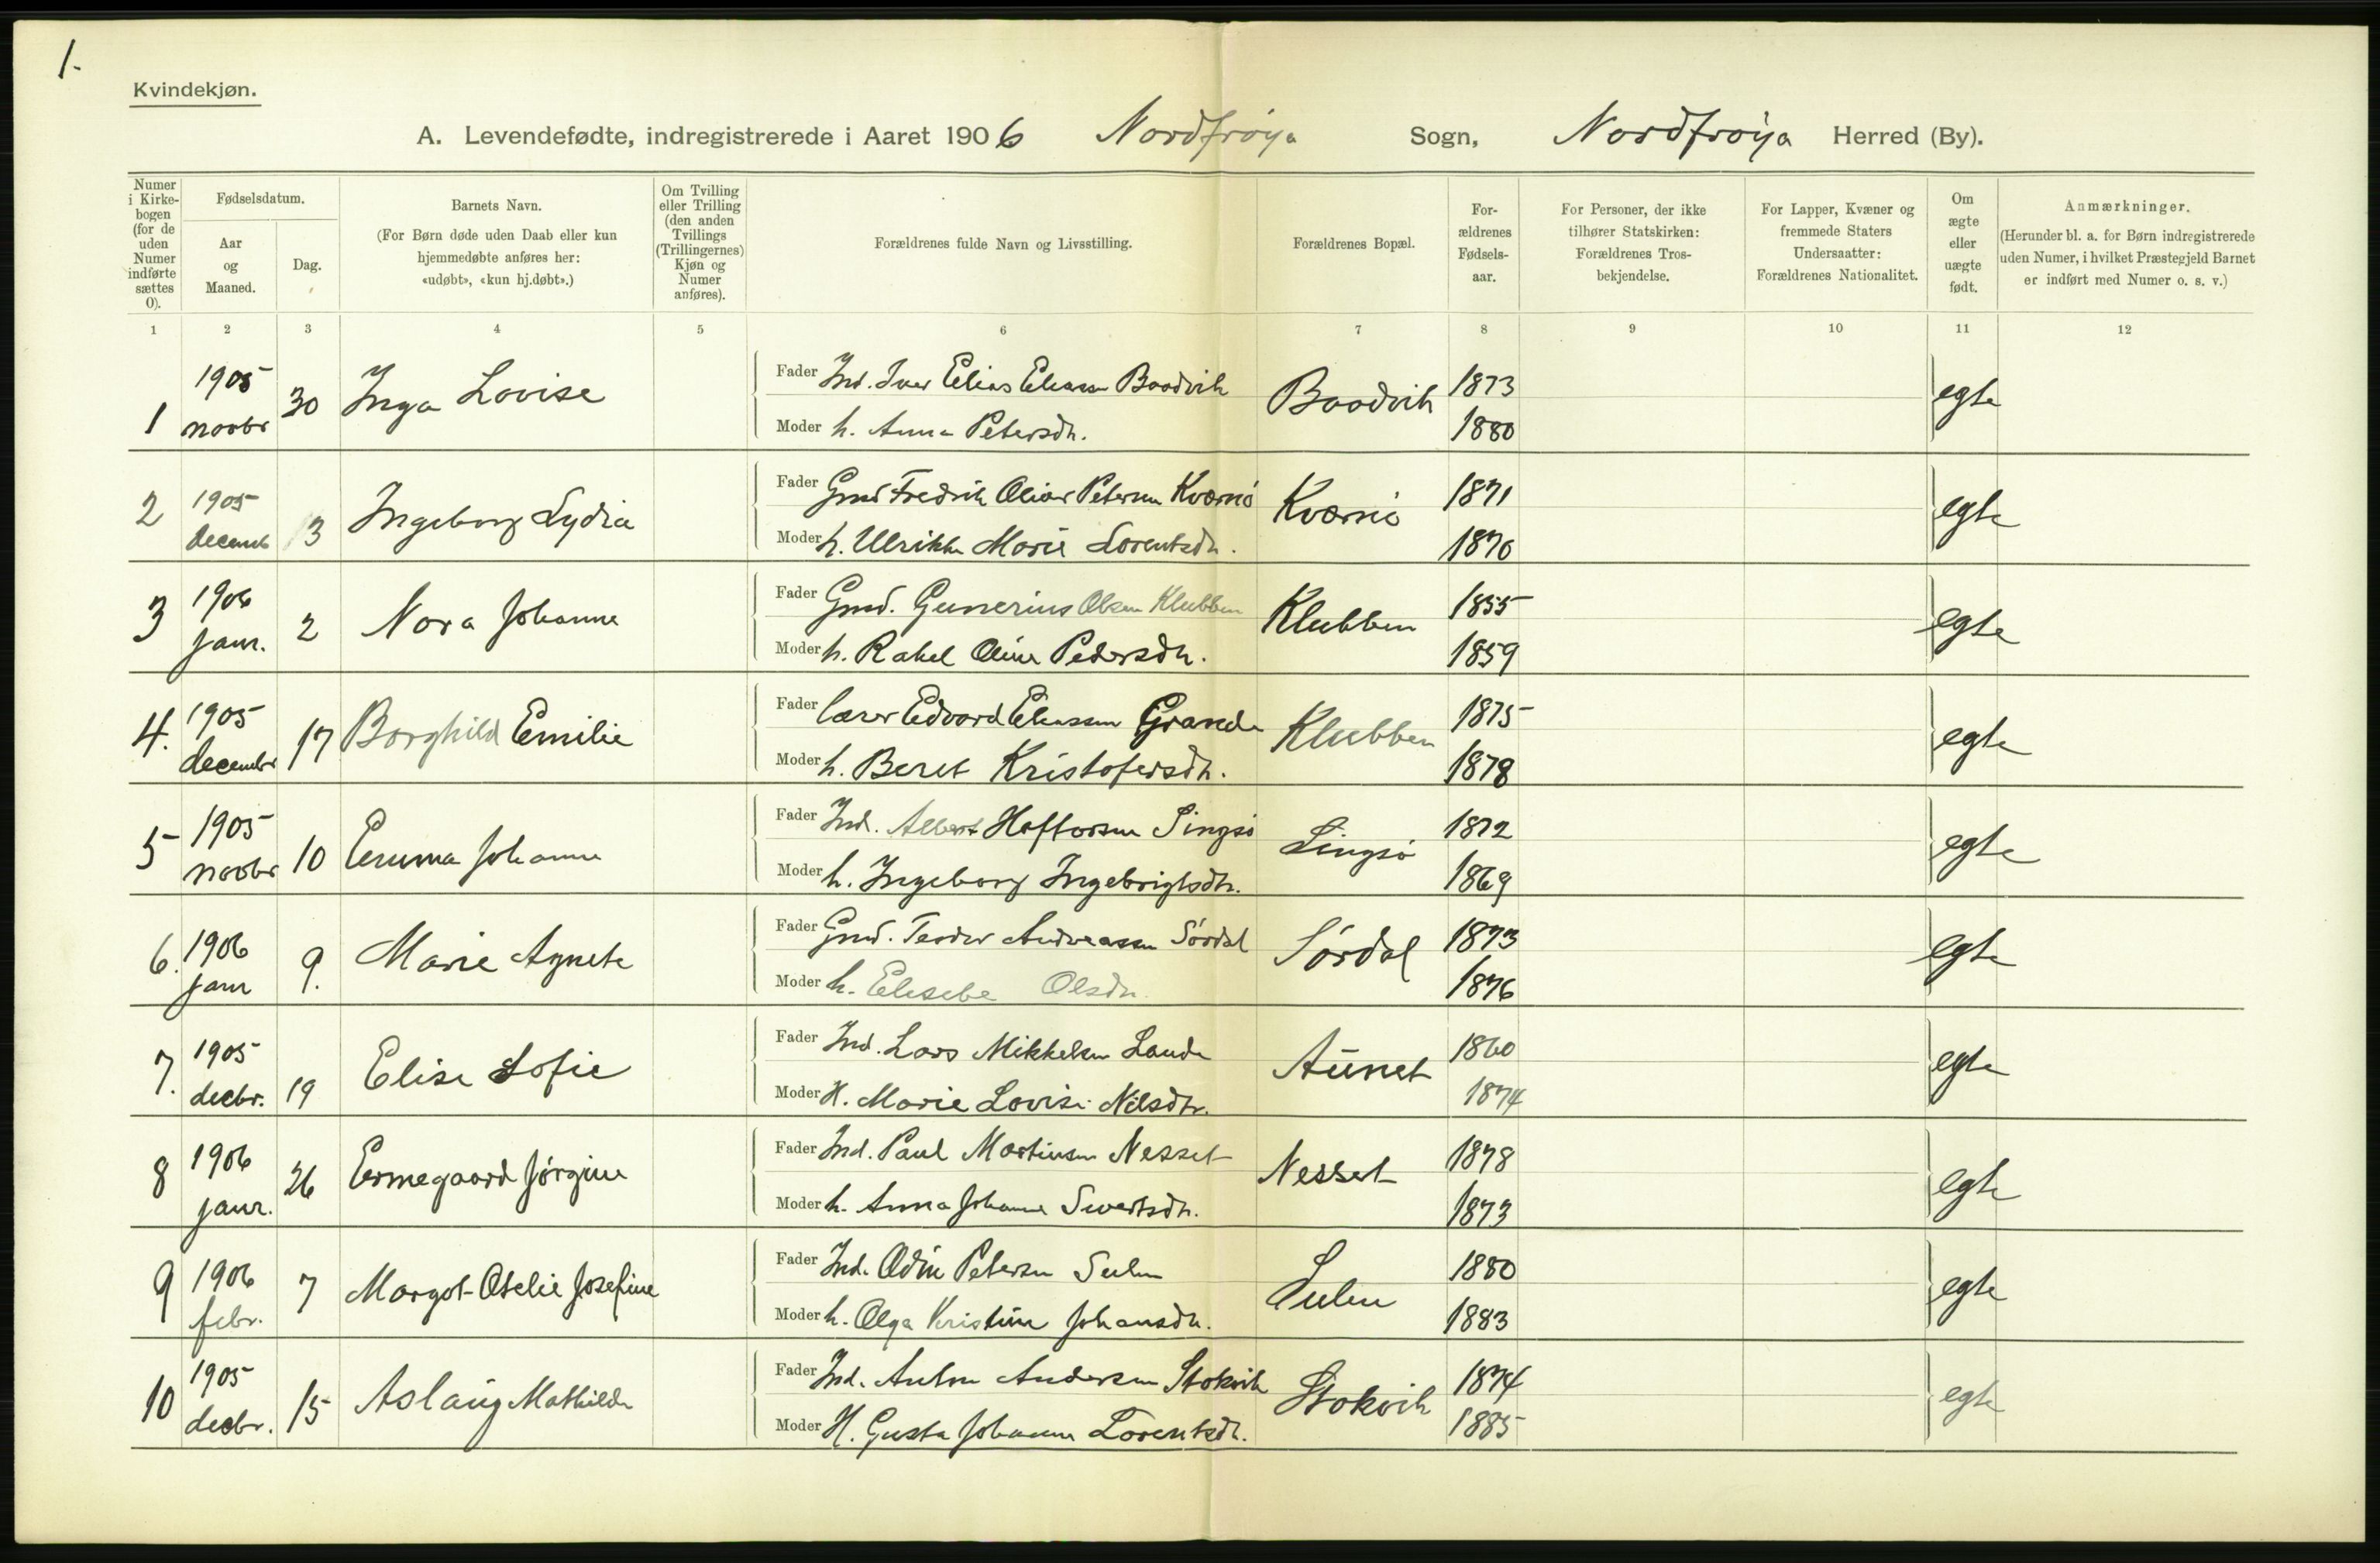 1.
Kvindekjøn.
A. Levendefødte, indregistrerede i Aaret 1906 Nordfrøya Sogn, Nordfrøya Herred (By).
Numer i Kirkebogen (for de uden Numer indførte sættes 0).
Fødselsdatum.
Aar og Maaned.
Dag.
Barnets Navn.
(For Børn døde uden Daab eller kun hjemmedøbte anføres her: «udøbt», «kun hj.døbt».)
Om Tvilling eller Trilling (den anden Tvillings (Trillingernes) Kjøn og Numer anføres).
Forældrenes fulde Navn og Livsstilling.
Forældrenes Bopæl.
Forældrenes Fødselsaar.
For Personer, der ikke tilhører Statskirken: Forældrenes Trosbekjendelse.
For Lapper, Kvæner og fremmede Staters Undersaatter: Forældrenes Nationalitet.
Om ægte eller uægte født.
Anmærkninger.
(Herunder bl. a. for Børn indregistrerede uden Numer, i hvilket Præstegjeld Barnet er indført med Numer o. s. v.)
1 2 3 4 5 6 7 8 9 10 11 12
1 1905 novbr 30 Inga Lovise
Fader Ind. Iver Elias Eliassen Baadvik Baadvik 1873 egte
Moder h. Anna Petersdtr. 1880
2 1905 decemb 13 Ingeborg Lydia
Fader Gmd Fredrik Oliver Petersen Kværnø Kværnø 1871 egte
Moder h. Ulrikke Marie Lorentsdtr. 1870
3 1906 janr. 2 Nora Johanne
Fader Gmd. Gunerius Olsen Klubben Klubben 1855 egte
Moder h. Rakel Oline Pedersdtr. 1859
4. 1905 decembr 17 Borghild Emilie
Fader lærer Edvard Eliassen Grande Klubben 1875 egte
Moder h. Beret Kristofersdtr. 1878
5 1905 novbr 10 Emma Johanne
Fader Ind. Albert Haftorsen Singsø Singsø 1872 egte
Moder h. Ingeborg Ingebrigtsdtr. 1869
6. 1906 janr 9. Marie Agnete
Fader Gmd. Teodor Andreassen Sørdal Sørdal 1873 egte
Moder h. Elisebe Olsdtr. 1876
7. 1905 decbr. 19 Elise Sofie
Fader Ind. Lars Mikkelsen Aunet 1860 egte
Moder H. Marie Lovise Nilsdtr. 1874
8 1906 janr. 26 Ermegaard Jørgine
Fader Ind. Paul Martinsen Nesset Nesset 1878 egte
Moder h. Anna Johanne Sivertsdtr. 1873
9 1906 febr. 7 Margot Otelie Josefine
Fader Ind. Odin Petersen Sulen Sulen 1880 egte
Moder h. Olga Kristine Johansdtr. 1883
10 1905 decbr. 15 Aslaug Mathilde
Fader Ind. Anton Andersen Stokvik Stokvik 1874 egte
Moder H. Gusta Johanna Lorentsdtr. 1885